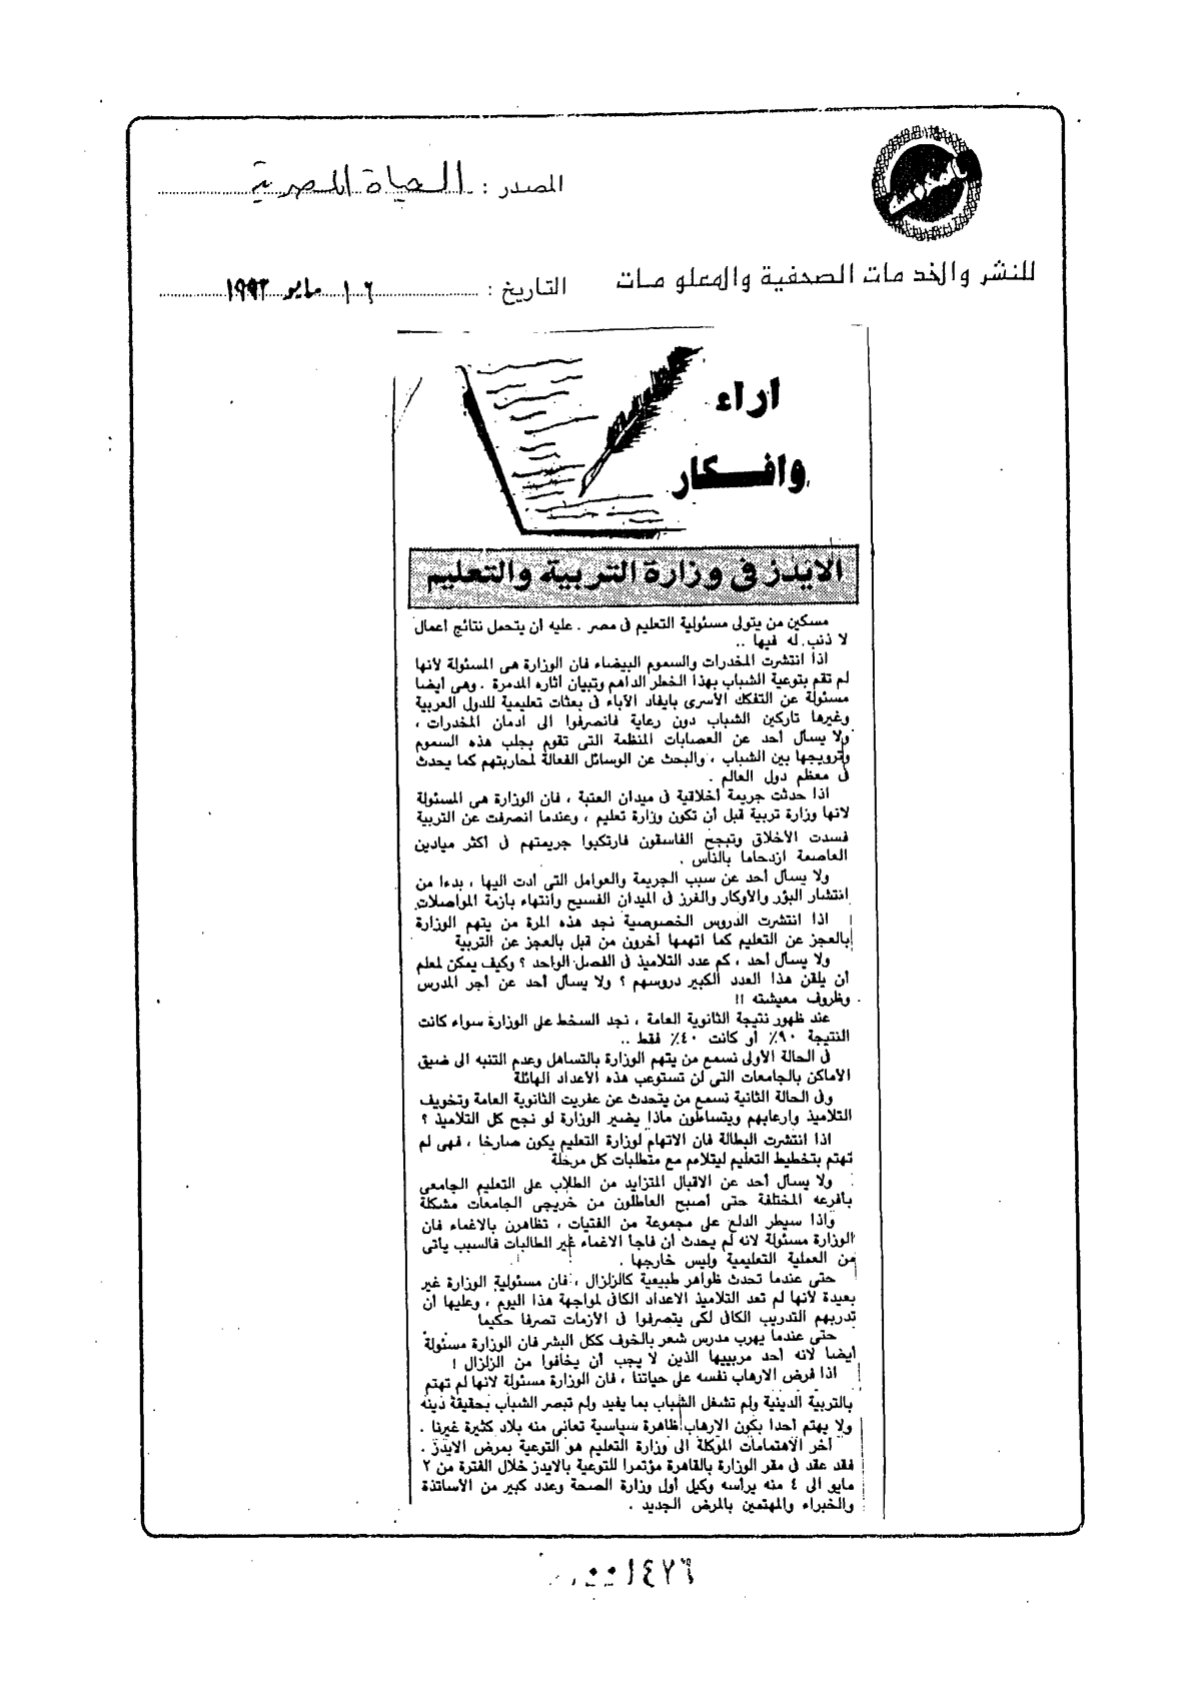 المصدر : الحياة المصرية
للنشر والخدمات الصحفية والمعلومات
التاريخ : ١٦ مايو ١٩٩٣
اراء
وافكار
الايدز فى وزارة التربية والتعليم
مسكين من يتولى مسئولية التعليم فى مصر . عليه ان يتحمل نتائج اعمال
لا ذنب له فيها ..
اذا انتشرت المخدرات والسموم البيضاء فان الوزارة هى المسئولة لأنها
لم تقم بتوعية الشباب بهذا الخطر الداهم وتبيان اثاره المدمرة . وهى أيضا
مسئولة عن التفكك الأسرى بايفاد الآباء فى بعثات تعليمية للدول العربية
وغيرها تاركين الشباب دون رعاية فانصرفوا الى ادمان المخدرات ،
ولا يسأل أحد عن العصابات المنظمة التى تقوم بجلب هذه السموم
وترويجها بين الشباب ، والبحث عن الوسائل الفعالة لمحاربتهم كما يحدث
فى معظم دول العالم .
اذا حدثت جريمة أخلاقية فى ميدان العتبة ، فان الوزارة هى المسئولة
لانها وزارة تربية قبل أن تكون وزارة تعليم ، وعندما انصرفت عن التربية
فسدت الأخلاق وتبجح الفاسقون فارتكبوا جريمتهم فى أكثر ميادين
العاصمة ازدحاما بالناس .
ولا يسأل أحد عن سبب الجريمة والعوامل التى أدت اليها ، بدءا من
انتشار البؤر والأوكار والفرز فى الميدان الفسيح وانتهاء بازمة المواصلات
اذا انتشرت الدروس الخصوصية نجد هذه المرة من يتهم الوزارة
بالعجز عن التعليم كما اتهمها أخرون من قبل بالعجز عن التربية
ولا يسأل أحد ، كم عدد التلاميذ فى الفصل الواحد ؟ وكيف يمكن لمعلم
أن يلقن هذا العدد الكبير دروسهم ؟ ولا يسأل أحد عن أجر المدرس
وظروف معيشته !!
عند ظهور نتيجة الثانوية العامة ، نجد السخط على الوزارة سواء كانت
النتيجة ٩٠٪ أو كانت ٤٠٪ فقط ..
فى الحالة الأولى نسمع من يتهم الوزارة بالتساهل وعدم التنبه الى ضيق
الأماكن بالجامعات التى لن تستوعب هذه الأعداد الهائلة
وفى الحالة الثانية نسمع من يتحدث عن عفريت الثانوية العامة وتخويف
التلاميذ وارعابهم ويتساطون ماذا يضير الوزارة لو نجح كل التلاميذ ؟
اذا انتشرت البطالة فان الاتهام لوزارة التعليم يكون صارخا ، فهى لم
تهتم بتخطيط التعليم ليتلاءم مع متطلبات كل مرحلة
ولا يسأل أحد عن الاقبال المتزايد من الطلاب على التعليم الجامعى
بافرعه المختلفة حتى أصبح العاطلون من خريجى الجامعات مشكلة
واذا سيطر الدلع على مجموعة من الفتيات ، تظاهرن بالاغماء فان
الوزارة مسئولة لانه لم يحدث أن فاجأ الاغماء غير الطالبات فالسبب يأتى
من العملية التعليمية وليس خارجها .
حتى عندما تحدث ظواهر طبيعية كالزلزال ، فان مسئولية الوزارة غير
بعيدة لأنها لم تعد التلاميذ الاعداد الكافى لمواجهة هذا اليوم ، وعليها أن
تدربهم التدريب الكافى لكى يتصرفوا فى الأزمات تصرفا حكيما
حتى عندما يهرب مدرس شعر بالخوف ككل البشر فان الوزارة مسئولة
أيضا لأنه أحد مربييها الذين لا يجب أن يخافوا من الزلزال !
اذا فرض الارهاب نفسه على حياتنا ، فان الوزارة مسئولة لانها لم تهتم
بالتربية الدينية ولم تشغل الشباب بما يفيد ولم تبصر الشباب بحقيقة دينه
ولا يهتم أحدا بكون الارهاب ظاهرة سياسية تعانى منه بلاد كثيرة غيرنا .
آخر الاهتمامات الموكلة الى وزارة التعليم هو التوعية بمرض الايدز .
فقد عقد فى مقر الوزارة بالقاهرة مؤتمرا للتوعية بالايدز خلال الفترة من ٢
مايو الى ٤ منه يرأسه وكيل أول وزارة الصحة وعدد كبير من الأساتذة
والخبراء والمهتمين بالمرض الجديد .
٠٠١٤٧٦